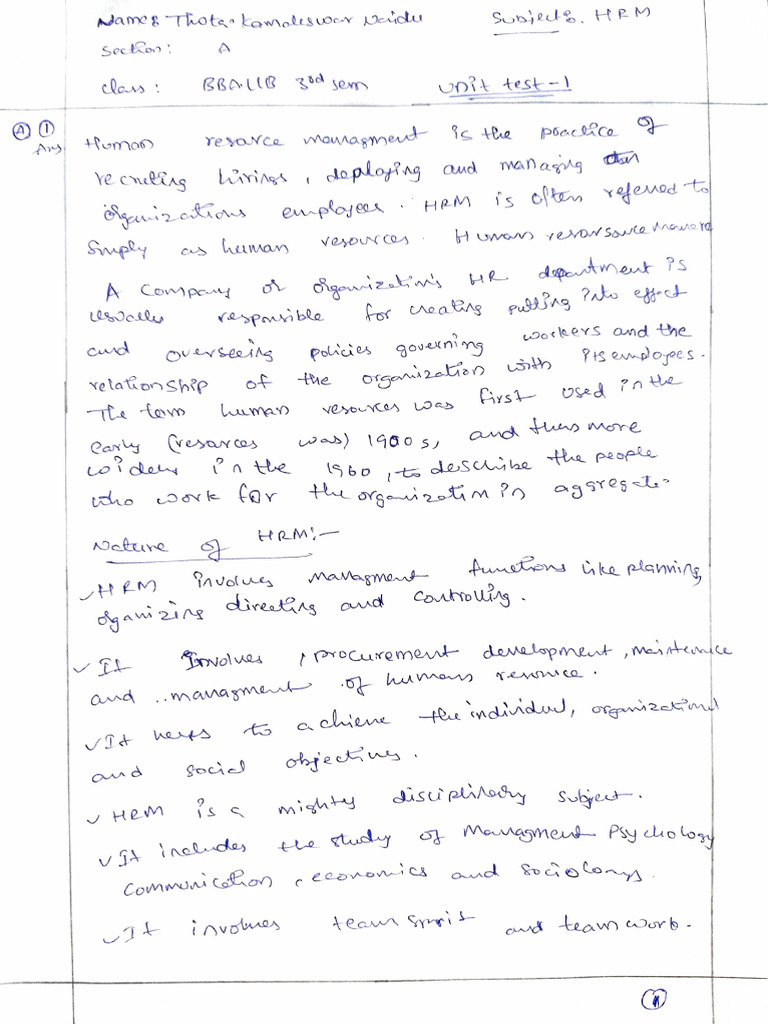 Name: Thota. Kamaleswar Naidu Subject: HRM
Section: A
Class: BBA.LLB 3rd sem Unit test-1
A 1
Ans Human resorce managment is the practice of
recruting hirings, deploying and managing an
organizations employees. HRM is often referred to
simply as human resources. Human
A company or organization's HR department is
usually responsible for creating putting into effect
and overseeing policies governing workers and the
relationship of the organization with its employees.
The term human resources was first used in the
early (resorces was) 1900s, and then more
widely in the 1960, to describe the people
who work for the organization in aggregate.
Nature of HRM:-
✓ HRM involves managment functions like planning,
organizing directing and controlling.
✓ It Involves, procurement development, maintenice
and .. managment of human resource.
✓ It helps to achieve the individual, organizational
and social objectives.
✓ HRM is a mighty disciplinary subject.
✓ It includes the study of Managment Psychology
Communication, economics and sociology.
✓ It involves team spirit and team work.
1